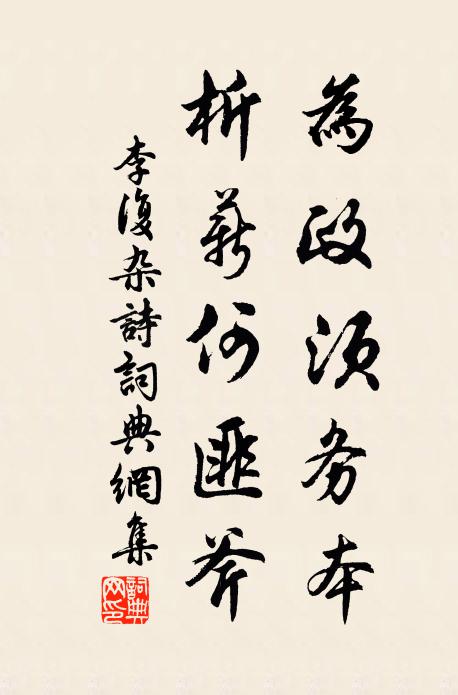 為政須务本
析薪何匪斧
李復杂詩詞典網集
詞典网印